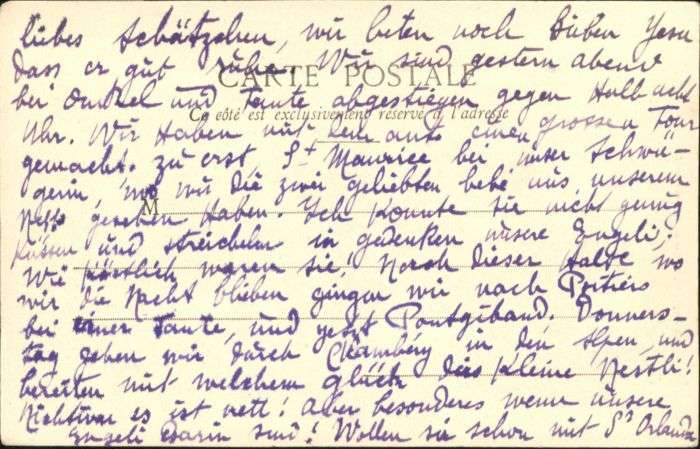 liebes Schätzchen, wir beten noch Lieben Yesu
dass er gut ruhe. Wir sind gestern abend
CARTE POSTALE
bei Onkel und Tante abgestiegen gegen Halb acht
Ce côté est exclusivement réservé à l'adresse
Uhr. Wir Haben mit dem auto einen grossen Tour
gemacht. zu erst St Maurice bei unser Schwä-
gerin, wo wir die zwei geliebten bebe aus unserem
M
Nest gesehen Haben. Ich konnte sie nicht genug
küssen und streicheln in gedenken unsere Engeli.
Wie köstlich waren sie! Nach dieser Halde wo
wir die Nacht blieben gingen wir nach Poitiers
bei einer Tante, und yetzt Pontgibaud. Donners-
tag gehen wir durch Chambéry in den Alpen und
bereiten mit welchem glück das kleine Nestli!
Nichtwar es ist nett! aber besonderes wenn unsere
Engeli darin sind! Wollen sie schon mit